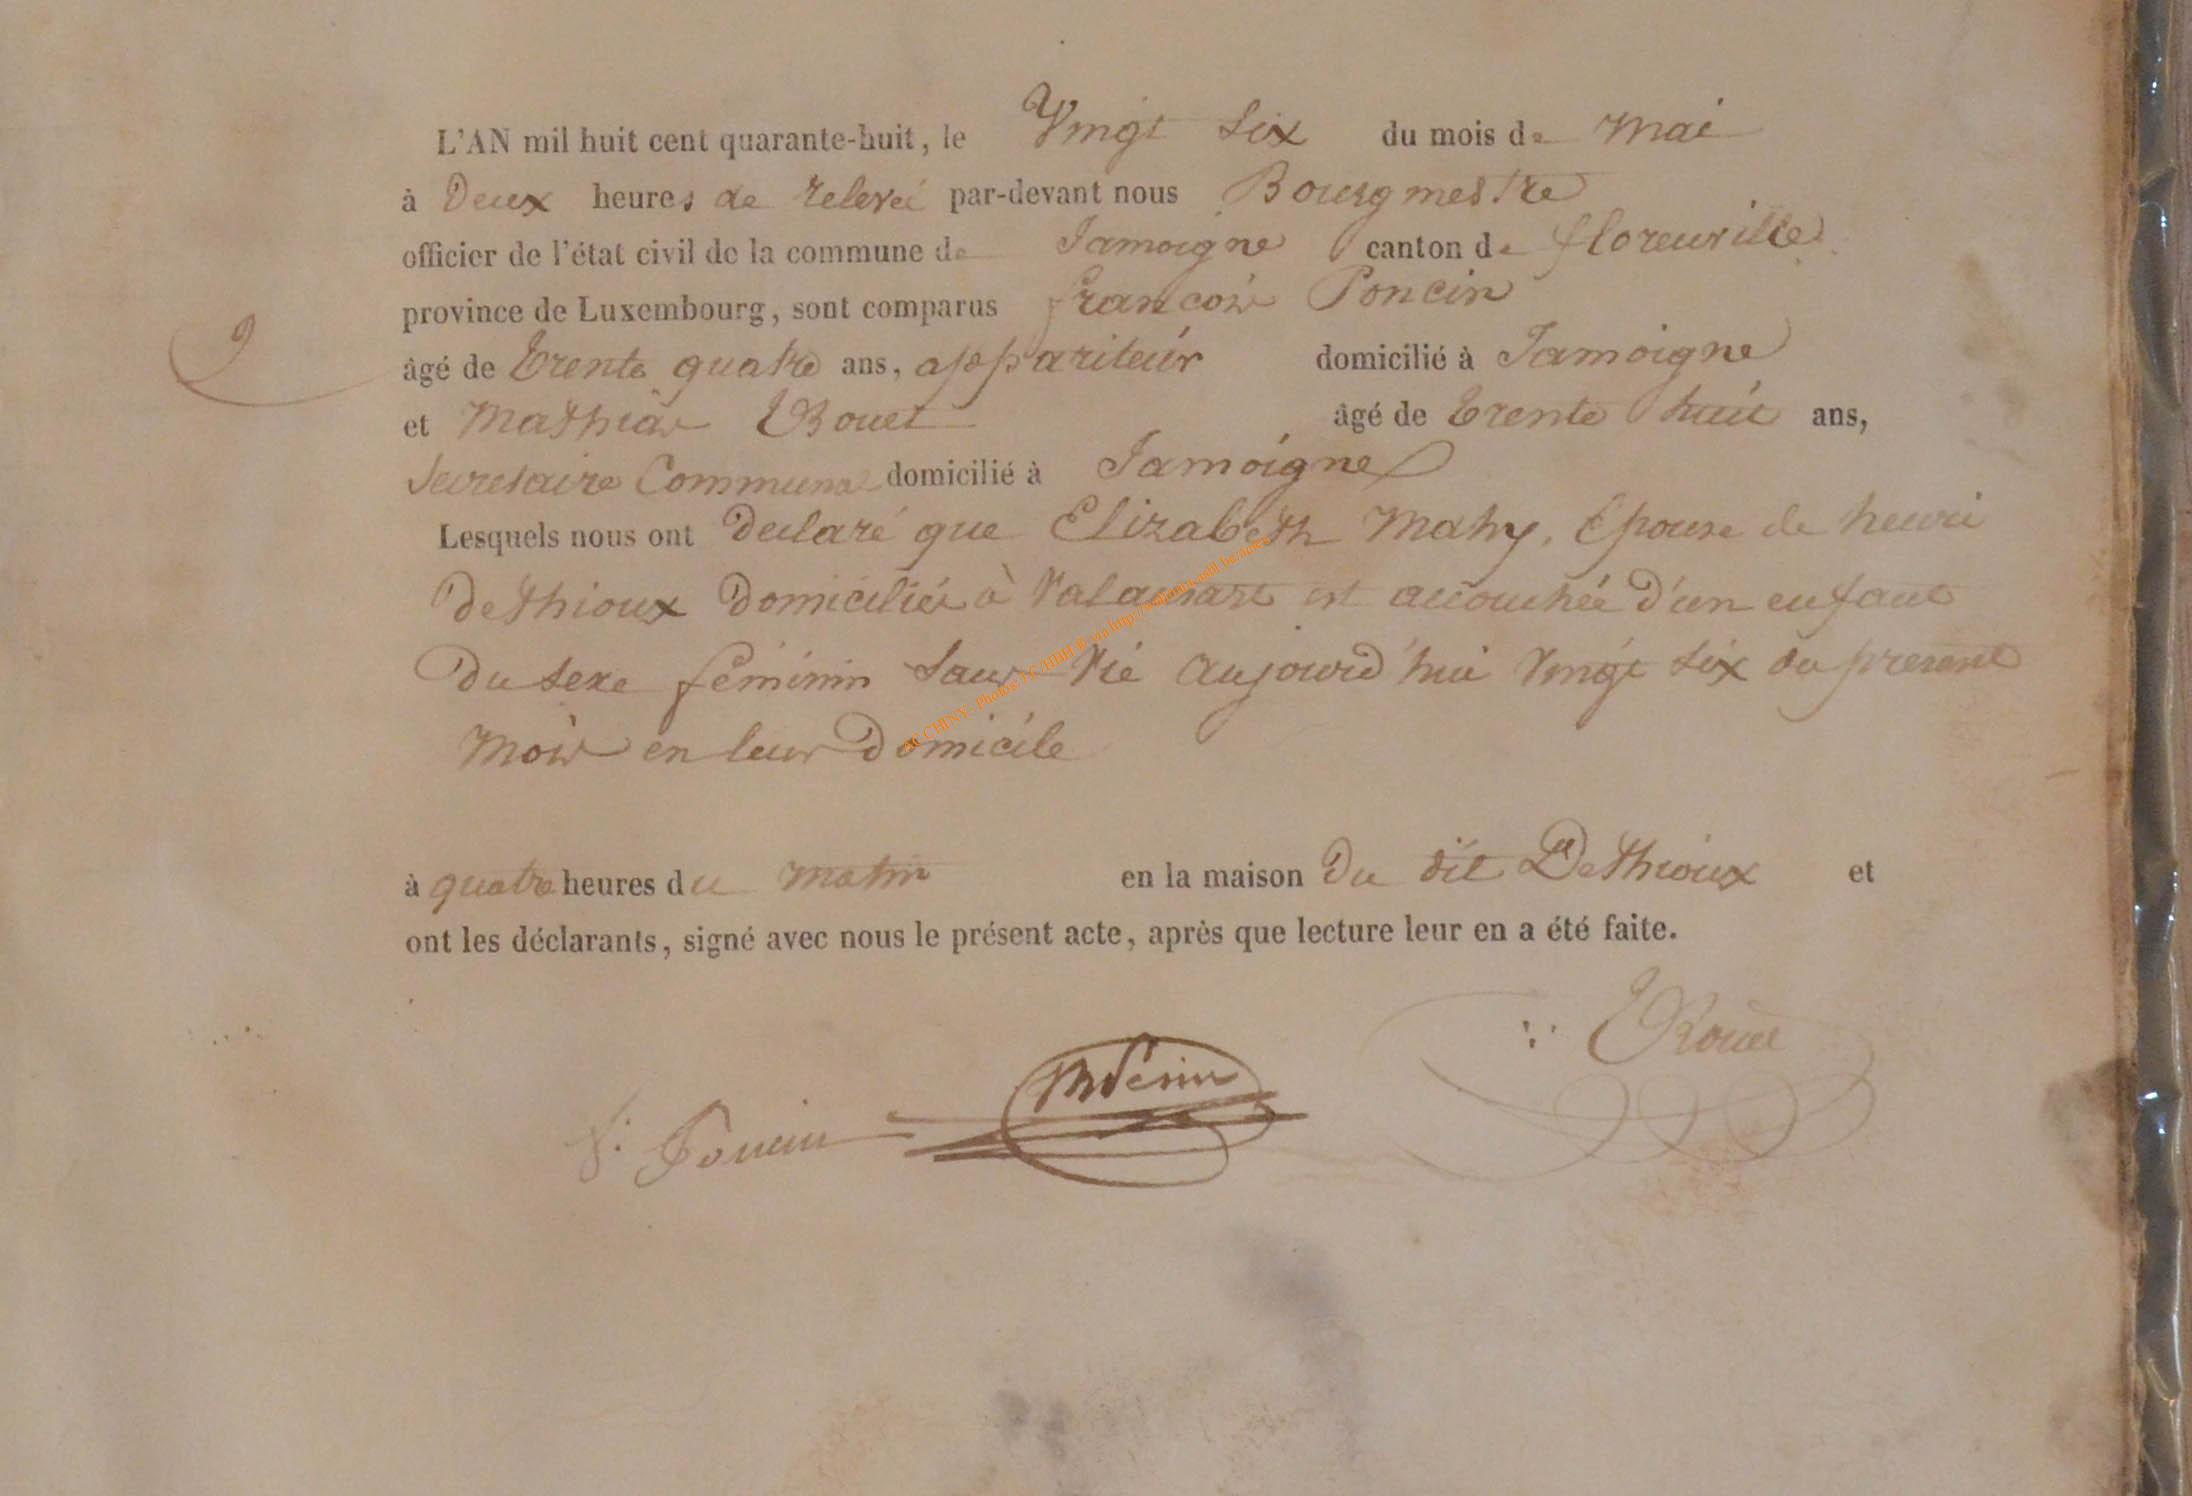 L'AN mil huit cent quarante-huit, le Vingt Six du mois de Mai
à Deux heures de relevée par-devant nous Bourgmestre
officier de l'état civil de la commune de Jamoigne canton de florenville
province de Luxembourg, sont comparus françois Poncin
9
âgé de trente quatre ans, appariteur domicilié à Jamoigne
et Mathias Rouet âgé de trente huit ans,
Secretaire Communal domicilié à Jamoigne
Lesquels nous ont Declaré que Elizabeth Mahy, Epouse de henri
Dethioux Domiciliée à Valansart est accouchée D'un enfant
Du sexe féminin Sans Vie aujourd'hui Vingt Six du present
Mois en leur Domicile
à quatre heures du Matin en la maison Du dit Dethioux et
ont les déclarants, signé avec nous le présent acte, après que lecture leur en a été faite.
Rouet
f: Poncin